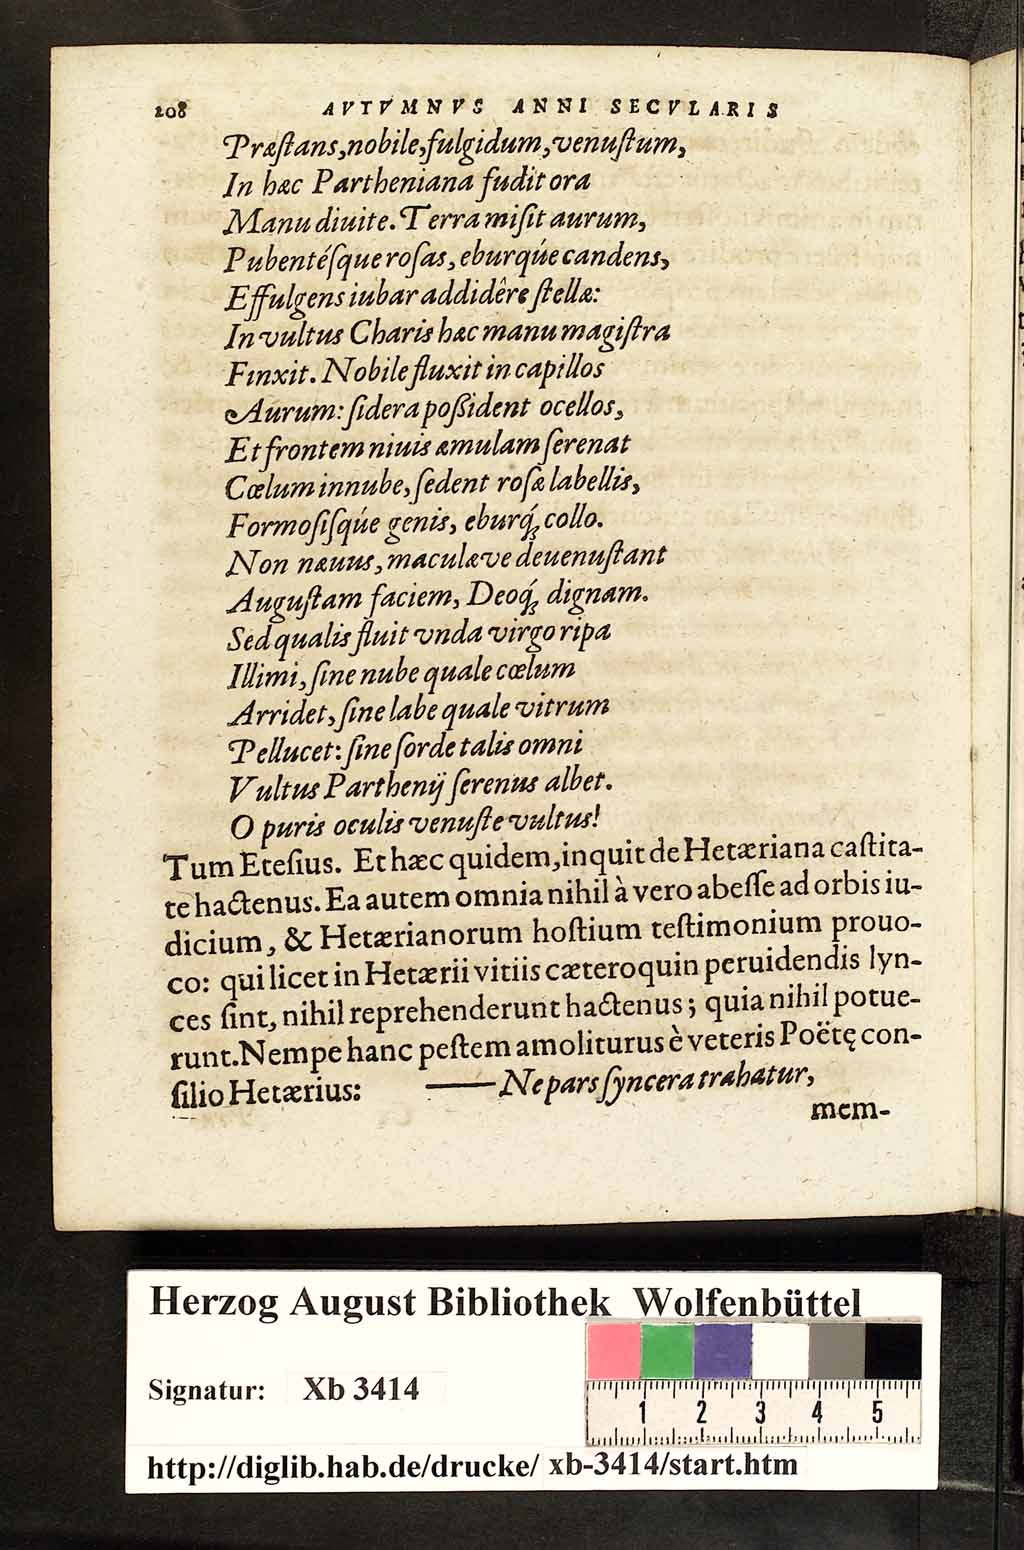 208 AVTVMNVS ANNI SECVLARIS
Præſtans,nobile,fulgidum,venuſtum,
In hæc Partheniana fudit ora
Manu diuite. Terra miſit aurum,
Pubentéſque roſas, eburqúe candens,
Effulgens iubar addidêre ſtellæ:
In vultus Charis hæc manu magiſtra
Finxit. Nobile fluxit in capillos
Aurum: ſidera poßident ocellos,
Et frontem niuis æmulam ſerenat
Cœlum innube, ſedent roſæ labellis,
Formoſiſqúe genis, eburq́; collo.
Non næuus, maculæve deuenuſtant
Auguſtam faciem, Deoq́; dignam.
Sed qualis fluit vnda virgo ripa
Illimi, ſine nube quale cœlum
Arridet, ſine labe quale vitrum
Pellucet: ſine ſorde talis omni
Vultus Parthenij ſerenus albet.
O puris oculis venuſte vultus!
Tum Eteſius. Et hæc quidem, inquit de Hetæriana caſtita-
te hactenus. Ea autem omnia nihil à vero abeſſe ad orbis iu-
dicium, & Hetærianorum hoſtium teſtimonium prouo-
co: qui licet in Hetærii vitiis cæteroquin peruidendis lyn-
ces ſint, nihil reprehenderunt hactenus; quia nihil potue-
runt. Nempe hanc peſtem amoliturus è veteris Poëtę con-
ſilio Hetærius: —— Ne pars ſyncera trahatur,
mem-
Herzog August Bibliothek Wolfenbüttel
Signatur: Xb 3414
1 2 3 4 5
http://diglib.hab.de/drucke/ xb-3414/start.htm